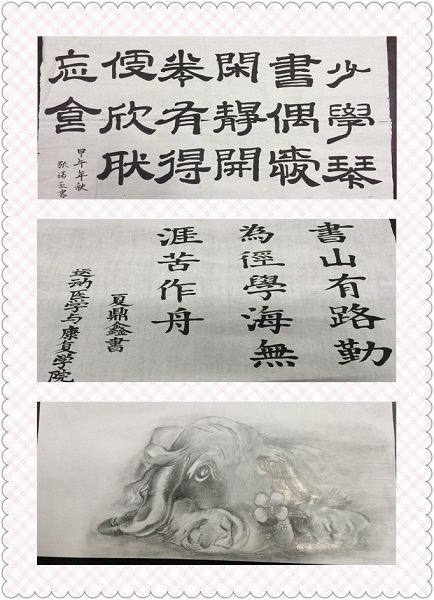 少學琴
書偶愛
閑靜開
卷有得
便欣然
忘食
甲午年秋
书山有路勤
為徑學海無
涯苦作舟
夏鼎鑫書
运动医学与康复学院